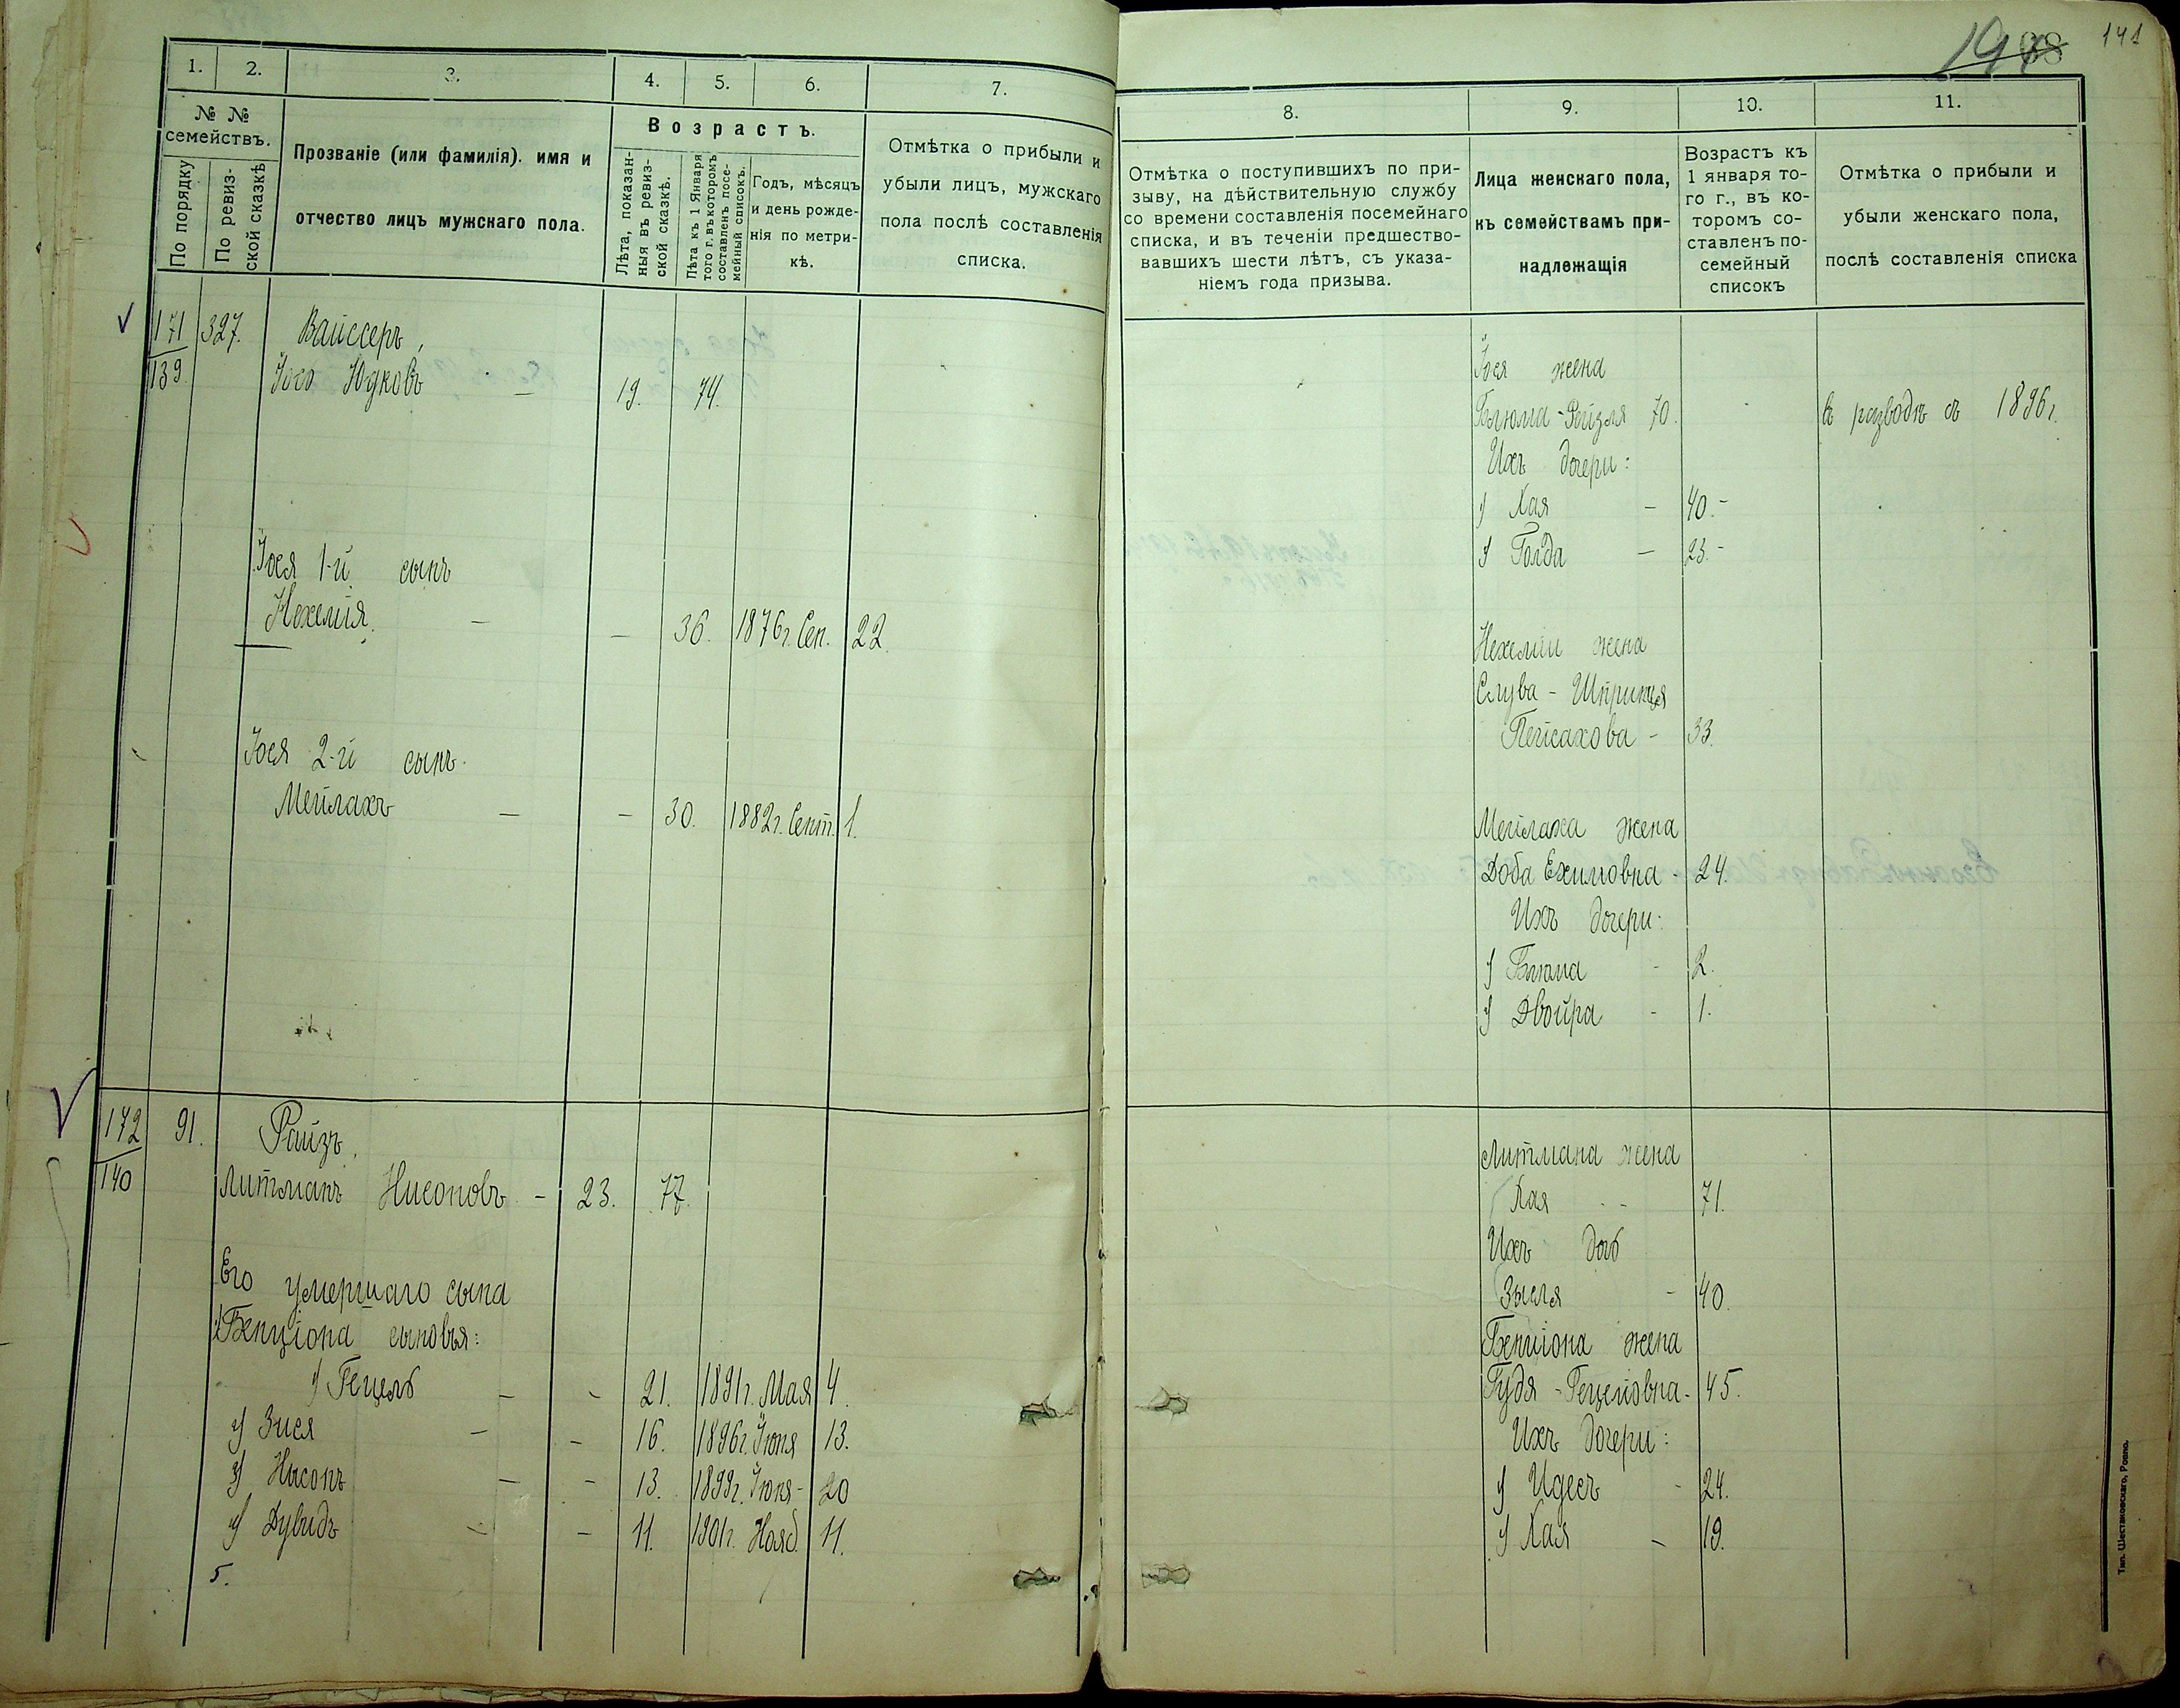 141
1.
2.
3.
4.
5.
6.
7.
№ №
семействъ.
По порядку
По ревиз-
ской сказкѣ
Прозваніе (или фамилія). имя и
отчество лицъ мужскаго пола.
Возрастъ.
Лѣта, показан-
ныя въ ревиз-
ской сказкѣ.
Лѣта къ 1 Января
того г. въ которомъ
составленъ посе-
мейный списокъ.
Годъ, мѣсяцъ
и день рожде-
нія по метри-
кѣ.
Отмѣтка о прибыли и
убыли лицъ, мужскаго
пола послѣ составленія
списка.
171 327. Вайссеръ,
139. Іосъ Юдковъ - 19. 74.
Іося 1-й сынъ
Нехемія. - - 36. 1876г. Сен. 22.
Іося 2-й сынъ.
Мейлахъ - - 30. 1882г. Сент. 1.
172 91. Райзъ.
140 Литманъ Нисоновъ - 23. 77.
Его умершаго сына
Бенціона сыновья:
1) Гецель - - 21. 1891г. Мая 4.
2) Зися - - 16. 1896г. Іюня 13.
3) Нысонъ - - 13. 1899г. Іюня - 20
4) Дувидъ - - 11. 1901г. Нояб. 11.
5.
8.
9.
10.
11.
Отмѣтка о поступившихъ по при-
зыву, на дѣйствительную службу
со времени составленія посемейнаго
списка, и въ теченіи предшество-
вавшихъ шести лѣтъ, съ указа-
ніемъ года призыва.
Лица женскаго пола,
къ семействамъ при-
надлежащія
Возрастъ къ
1 января то-
го г., въ ко-
торомъ со-
ставленъ по-
семейный
списокъ
Отмѣтка о прибыли и
убыли женскаго пола,
послѣ составленія списка
Іося жена
Блюма-Рейзля 70. в разводѣ съ 1896г.
Ихъ дочери:
1) Хая - 40.-
2) Голда - 23.-
Нехеміи жена
Слува - Шпринця
Пейсахова - 33.
Мейлаха жена
Доба Ехимовна - 24.
Ихъ дочери:
1) Блюма - 2.
2) Двойра - 1.
Литмана жена
Хая - 71.
Ихъ дочь
Зысля - 40.
Бенціона жена
Гудя - Гецеловна - 45.
Ихъ дочери:
1) Идесъ - 24.
2) Хая - 19.
Тип. Шестаковскаго, Ровно.